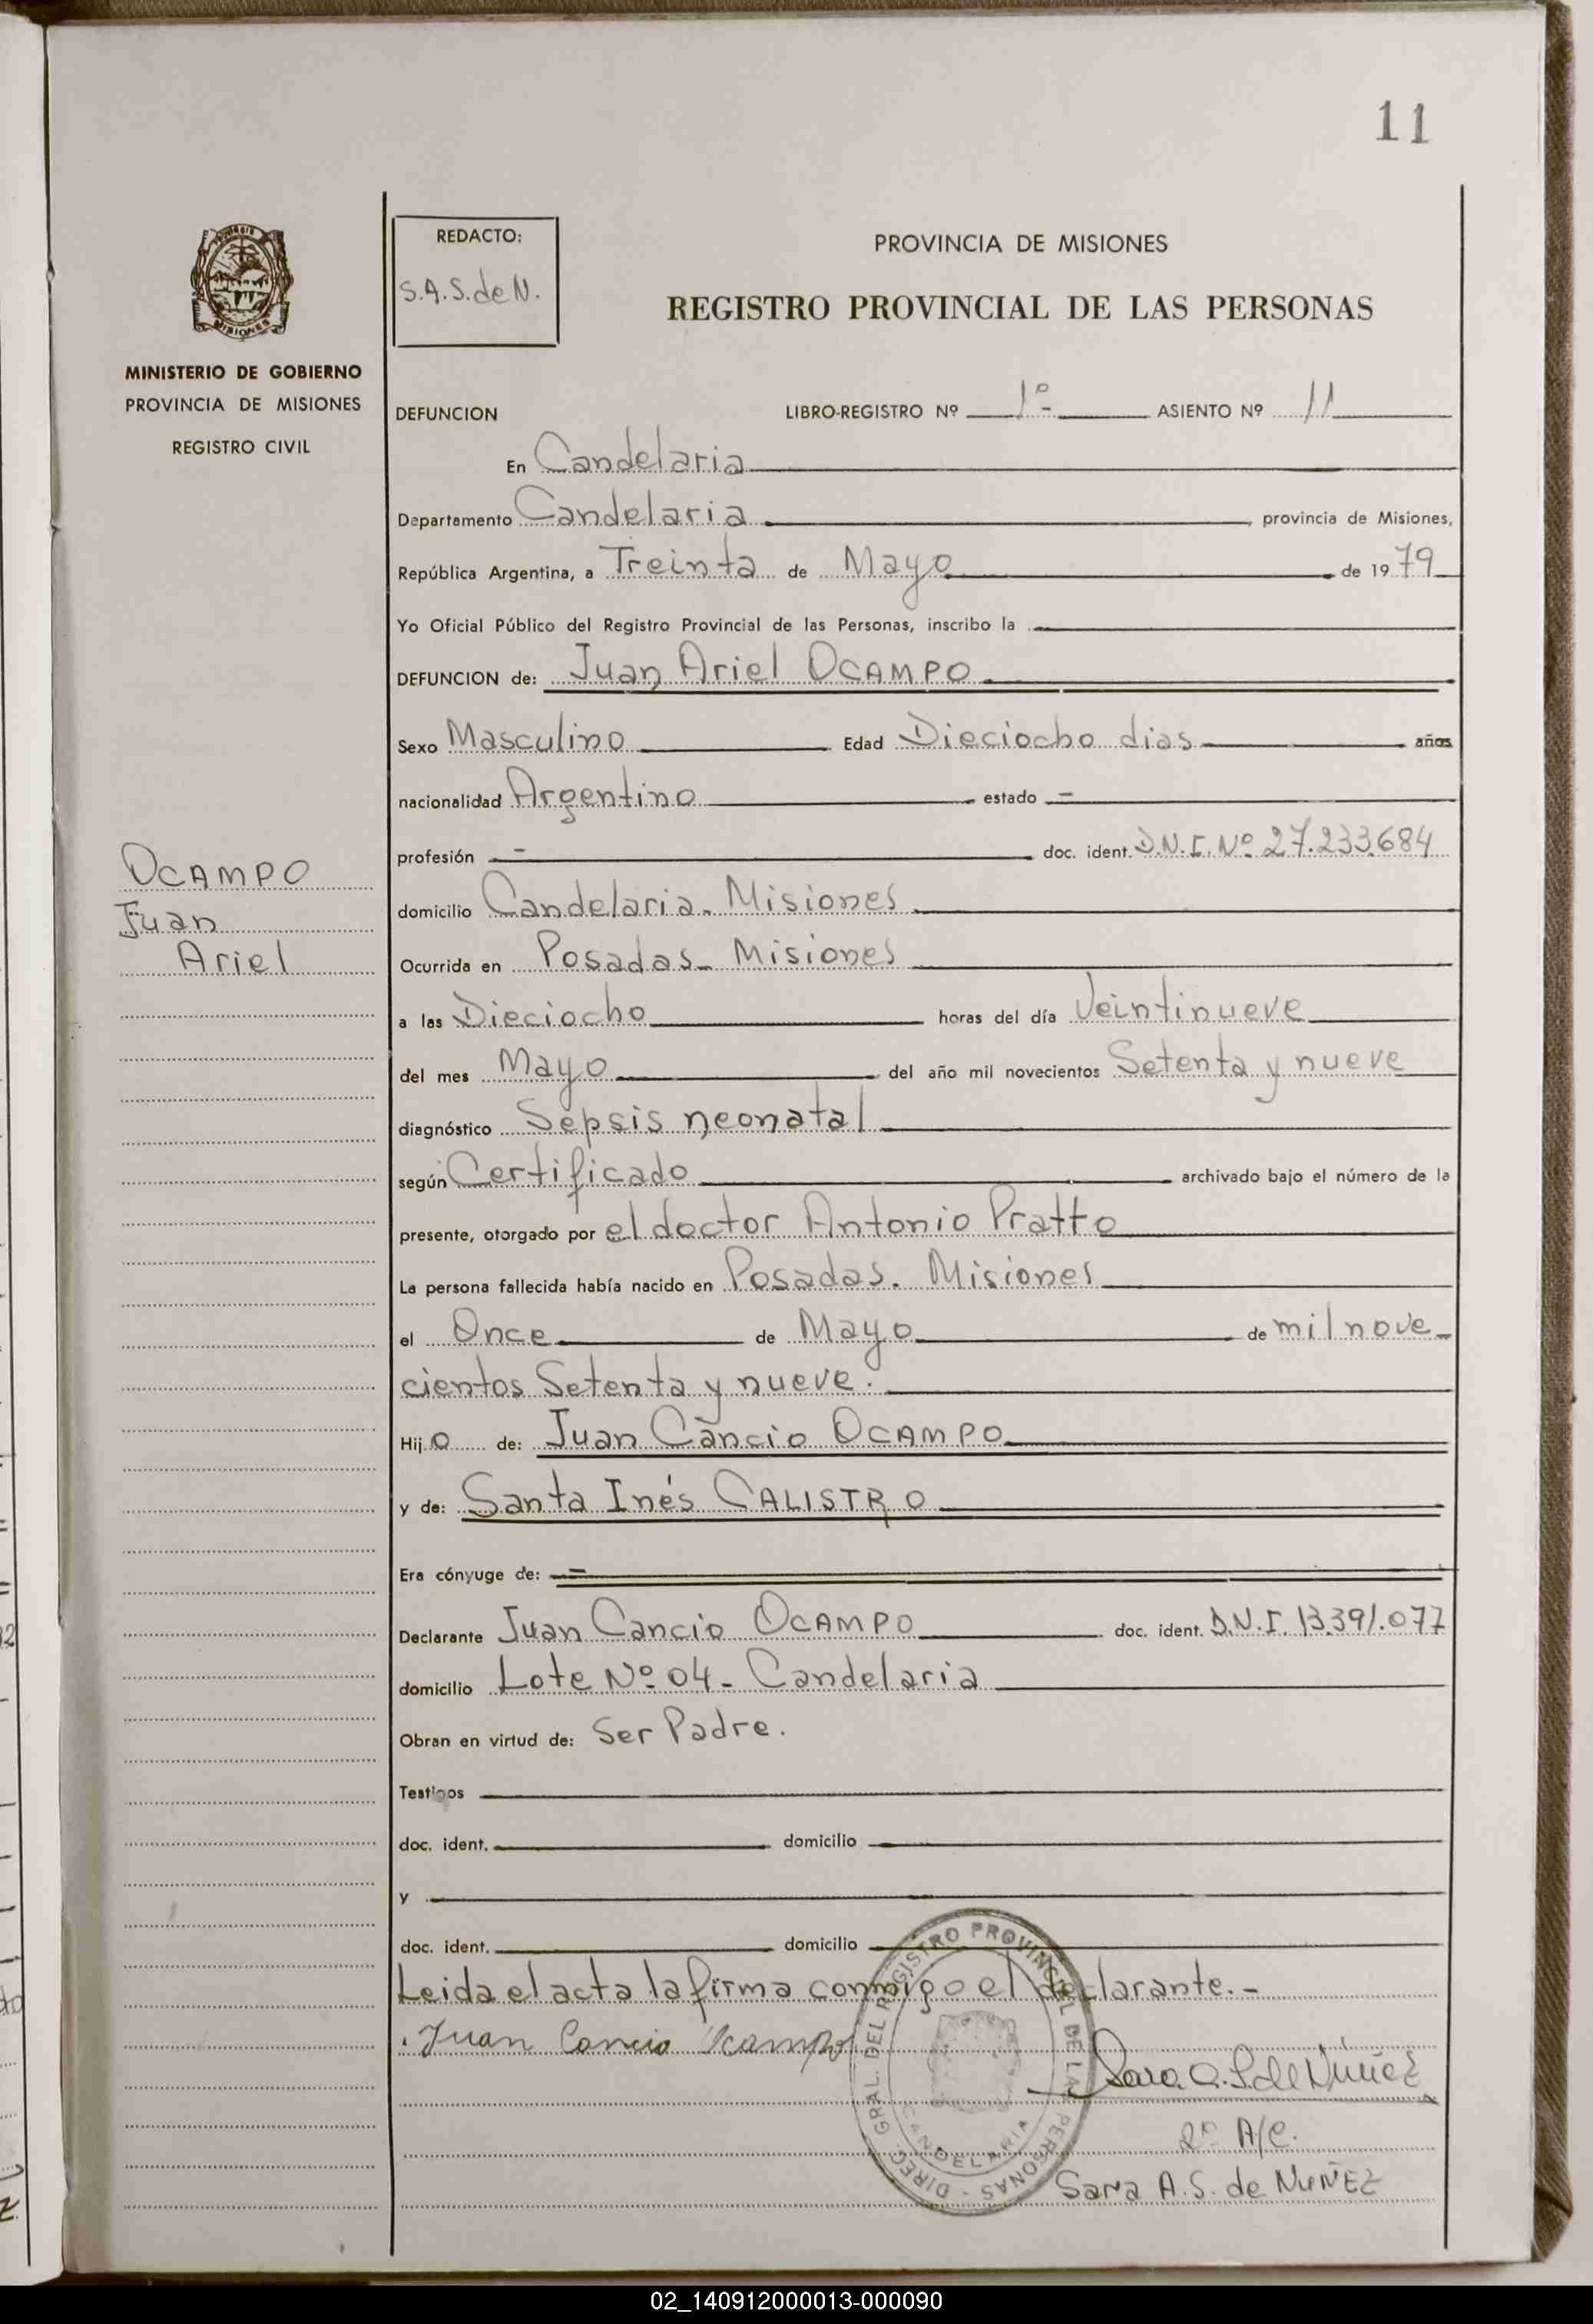 11
REDACTO:
S.A.S. de N.
PROVINCIA DE MISIONES
REGISTRO PROVINCIAL DE LAS PERSONAS
MISIONES
MINISTERIO DE GOBIERNO
PROVINCIA DE MISIONES
REGISTRO CIVIL
DEFUNCION LIBRO-REGISTRO Nº 1º- ASIENTO Nº 11
En Candelaria
Departamento Candelaria, provincia de Misiones,
República Argentina, a Treinta de Mayo de 1979
Yo Oficial Público del Registro Provincial de las Personas, inscribo la
DEFUNCION de: Juan Ariel OCAMPO
Sexo Masculino Edad Dieciocho dias años
nacionalidad Argentino estado -
profesión - doc. ident. D.N.I. Nº 27.233.684
OCAMPO
Juan
Ariel
domicilio Candelaria. Misiones
Ocurrida en Posadas- Misiones
a las Dieciocho horas del día Veintinueve
del mes Mayo del año mil novecientos Setenta y nueve
diagnóstico Sepsis neonatal
según Certificado archivado bajo el número de la
presente, otorgado por el doctor Antonio Pratto
La persona fallecida había nacido en Posadas. Misiones
el Once de Mayo de mil nove-
cientos Setenta y nueve.
Hijo de: Juan Cancio OCAMPO
y de: Santa Inés CALISTRO
Era cónyuge de: =
Declarante Juan Cancio OCAMPO doc. ident. D.N.I. 13.391.077
domicilio Lote Nº 04- Candelaria
Obran en virtud de: Ser Padre.
Testigos
doc. ident. domicilio
y
doc. ident. domicilio
Leida el acta la firma conmigo el declarante.-
Juan Cancio Ocampo
DIREC. GRAL. DEL REGISTRO PROVINCIAL DE LAS PERSONAS -
CANDELARIA
Sara A. S. de Núñez
2º A/C.
Sara A.S. de NUÑEZ
02_140912000013-000090